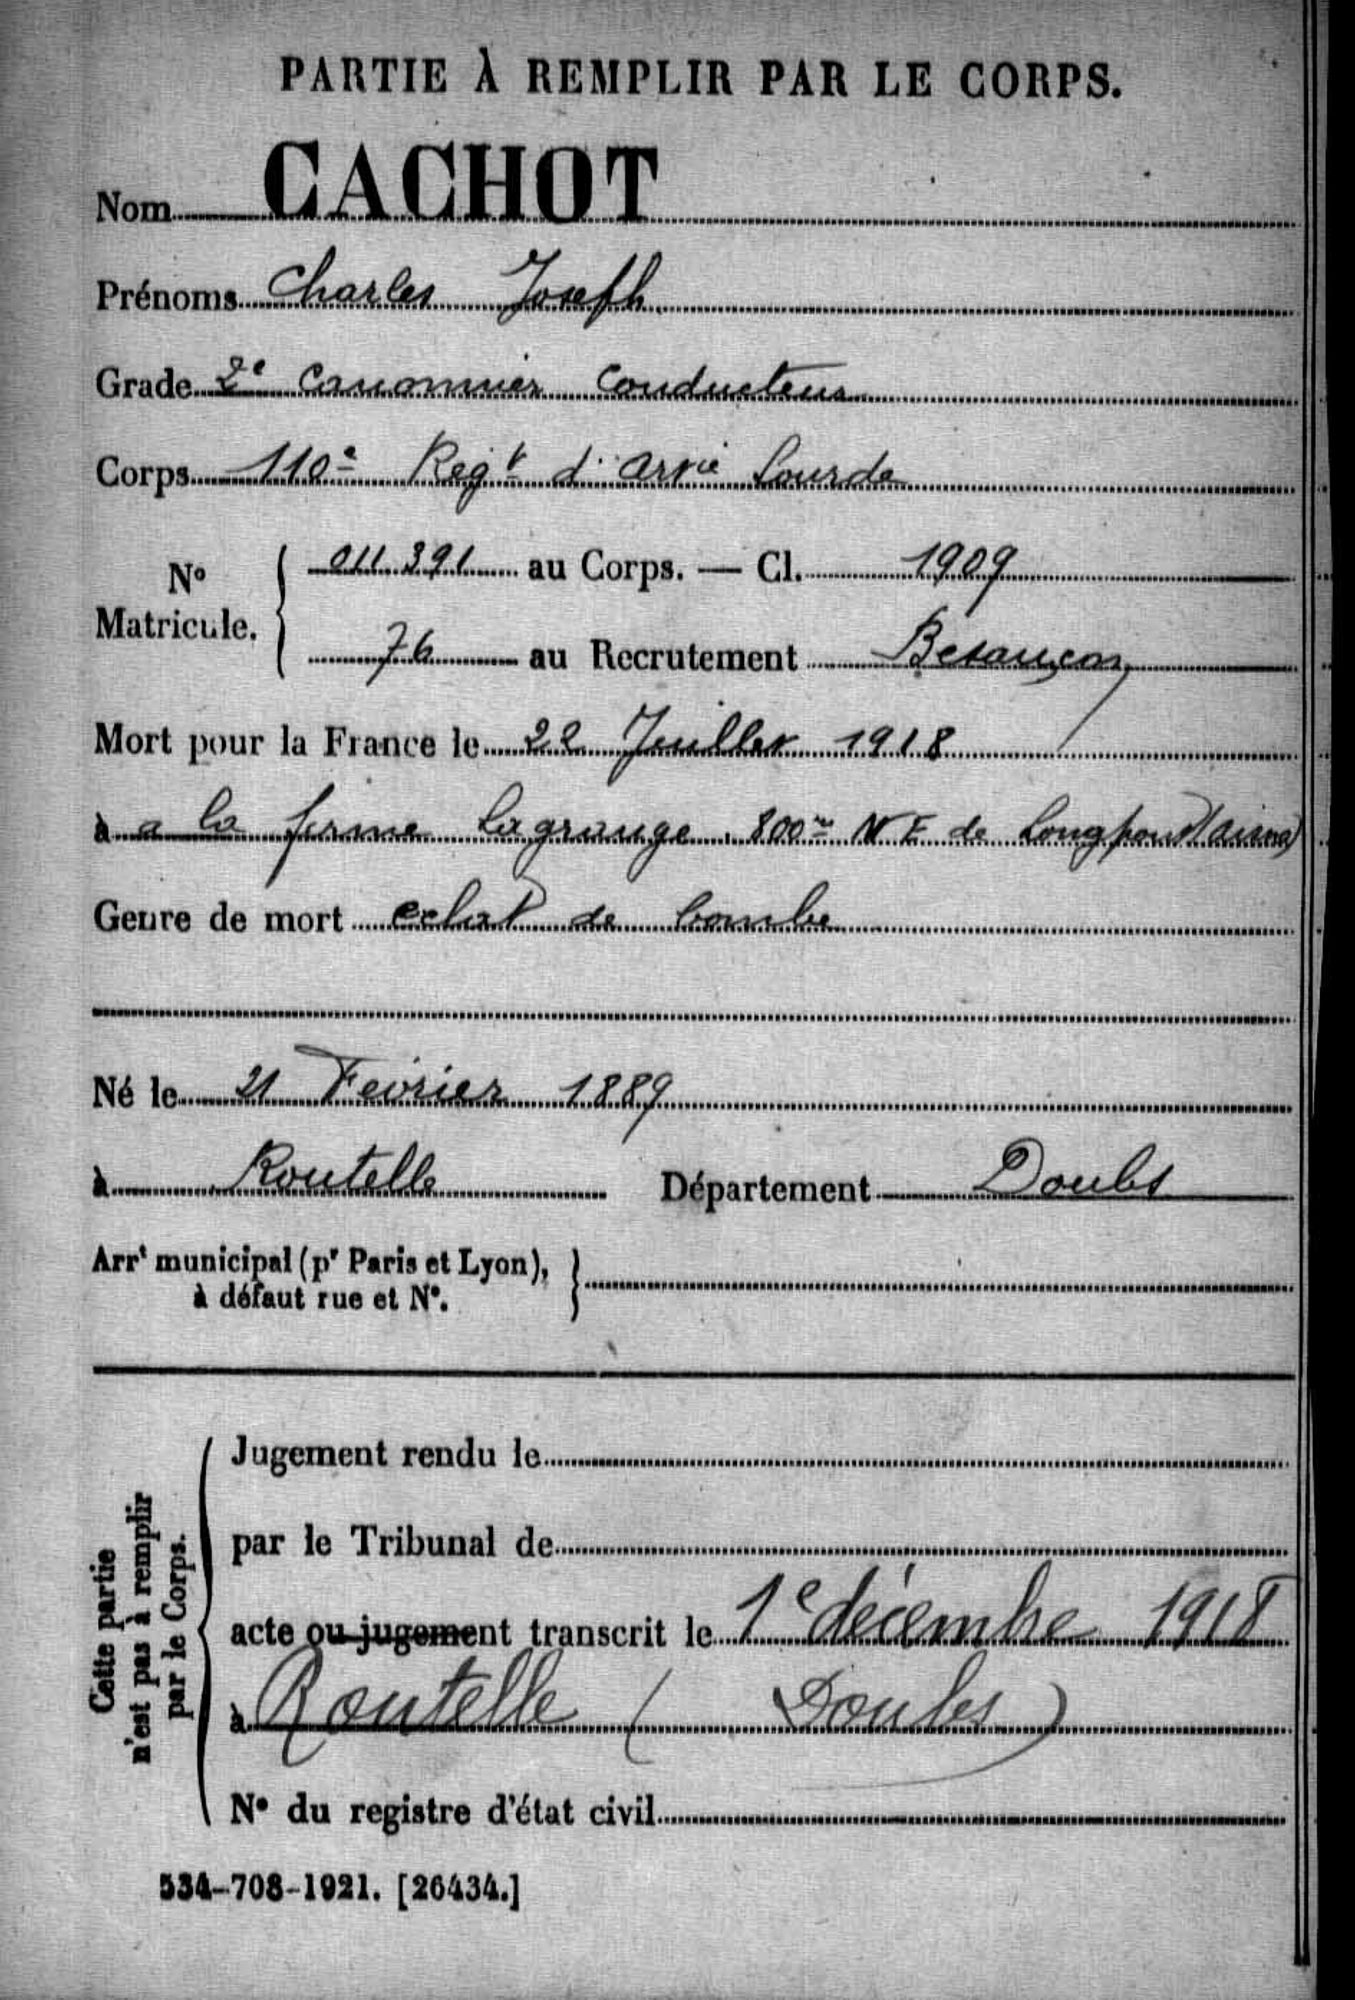 PARTIE À REMPLIR PAR LE CORPS.
Nom CACHOT
Prénoms Charles Joseph
Grade 2e Canonnier Conducteur
Corps 110e Regt d'Artie Lourde
No Matricule. { 011391 au Corps. — Cl. 1909
76 au Recrutement Besançon
Mort pour la France le 22 Juillet 1918
à a la ferme Lagrange. 800m N E de Longpont (aisne)
Genre de mort eclat de bombe
Né le 21 Fevrier 1889
à Routelle Département Doubs
Arrt municipal (pr Paris et Lyon), à défaut rue et No. }
Cette partie n'est pas à remplir par le Corps.
Jugement rendu le
par le Tribunal de
acte ou jugement transcrit le 1e décembre 1918
à Routelle (Doubs)
No du registre d'état civil
534-708-1921. [26434.]